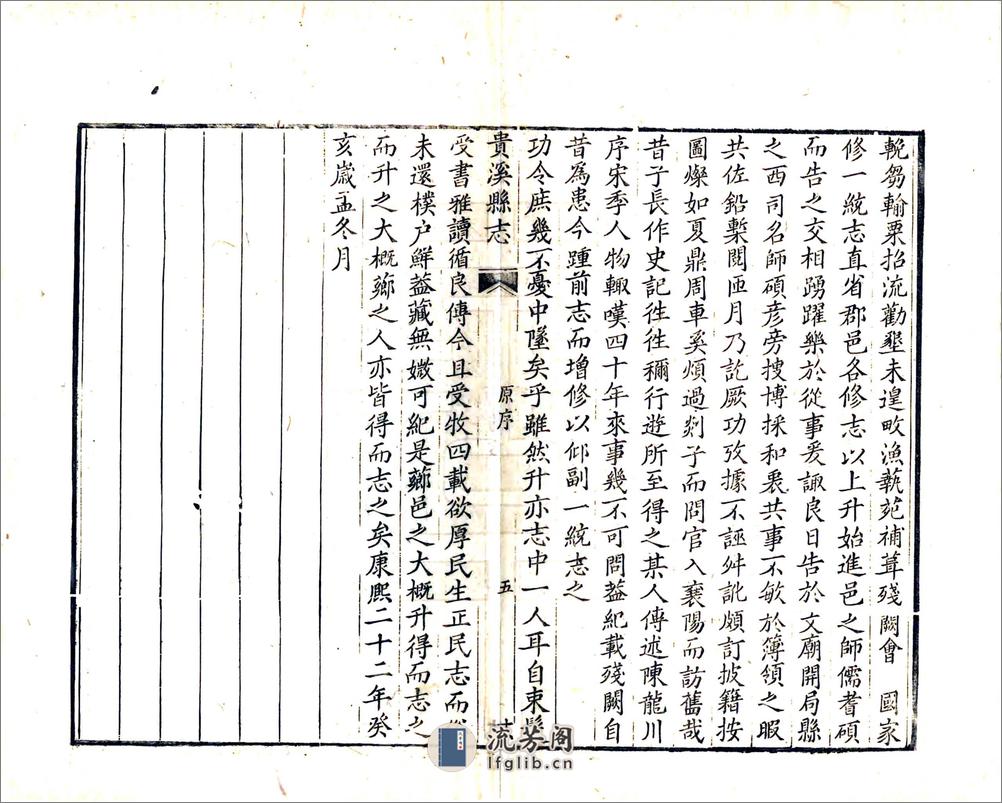 輓芻輸粟招流勸墾未遑畋漁蓺苑補葺殘闕會　國家
修一統志直省郡邑各修志以上升始進邑之師儒耆碩
而告之交相踴躍樂於從事爰諏良日告於文廟開局縣
之西司名師碩彦旁搜博採和衷共事不敏於簿領之暇
共佐鉛槧閱匝月乃訖厥功攷據不誣舛訛頗訂披籍按
圖燦如夏鼎周車奚煩過剡子而問官入襄陽而訪舊哉
昔子長作史記徃徃襧行遊所至得之某人傳述陳龍川
序宋季人物輙嘆四十年來事幾不可問葢紀載殘闕自
昔爲患今踵前志而增修以仰副一統志之
功令庶幾不憂中墜矣乎雖然升亦志中一人耳自束髮
貴溪縣志
原序
五
受書雅讀循良傳今且受牧四載欲厚民生正民志而
未還樸户鮮葢藏無媺可紀是薌邑之大概升得而志之
而升之大概薌之人亦皆得而志之矣康熙二十二年癸
亥歲孟冬月
流芳阁
lfglib.cn